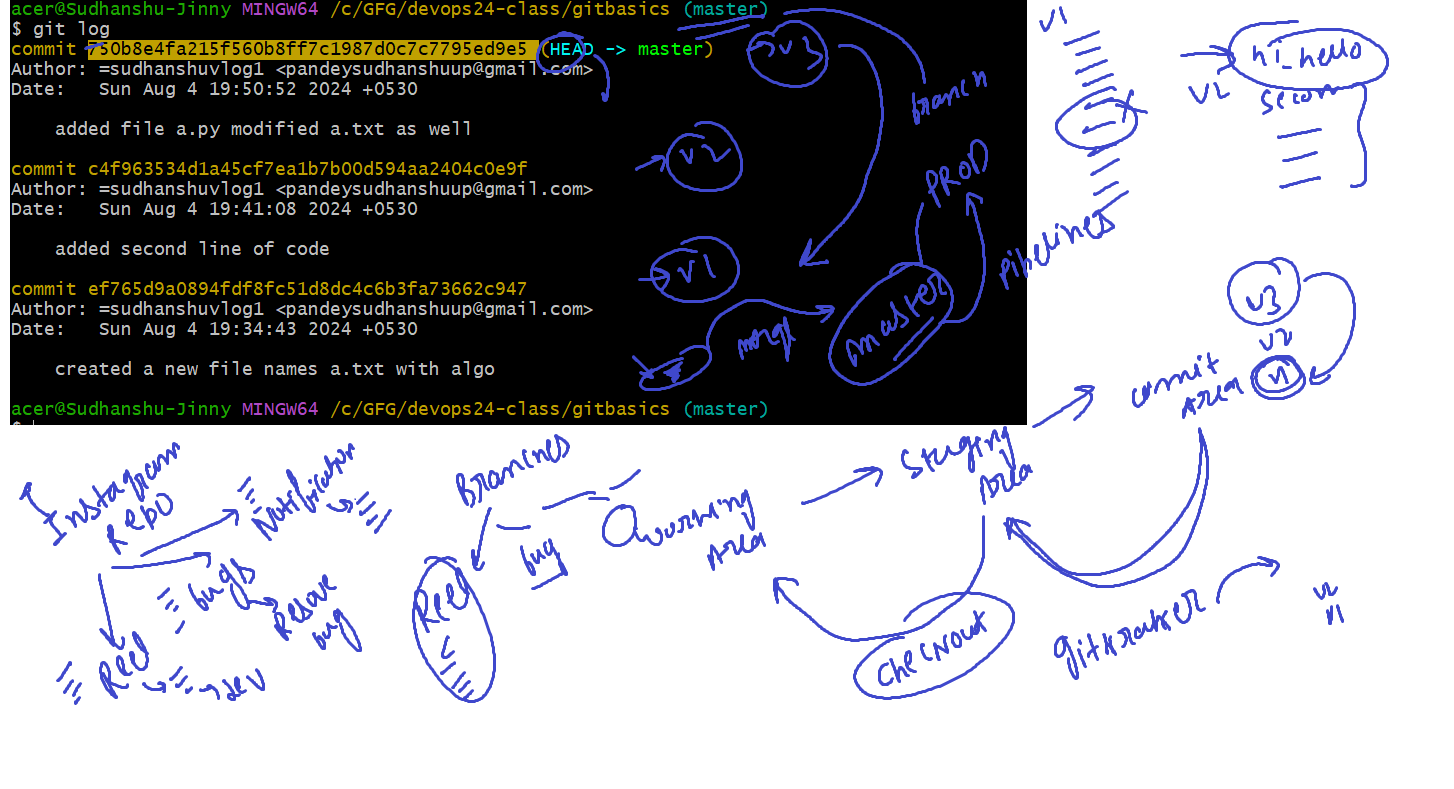 acer@Sudhanshu-Jinny MINGW64 /c/GFG/devops24-class/gitbasics (master)
$ git log
commit 750b8e4fa215f560b8ff7c1987d0c7c7795ed9e5 (HEAD -> master)
Author: =sudhanshuvlog1 <pandeysudhanshuup@gmail.com>
Date:   Sun Aug 4 19:50:52 2024 +0530
added file a.py modified a.txt as well
commit c4f963534d1a45cf7ea1b7b00d594aa2404c0e9f
Author: =sudhanshuvlog1 <pandeysudhanshuup@gmail.com>
Date:   Sun Aug 4 19:41:08 2024 +0530
added second line of code
commit ef765d9a0894fdf8fc51d8dc4c6b3fa73662c947
Author: =sudhanshuvlog1 <pandeysudhanshuup@gmail.com>
Date:   Sun Aug 4 19:34:43 2024 +0530
created a new file names a.txt with algo
acer@Sudhanshu-Jinny MINGW64 /c/GFG/devops24-class/gitbasics (master)
$
v3
branch
v2
PROD
v1
master
merge
pipelines
v1
hi_hello
v2
v3
v2
v1
commit
Area
Instagram
Repo
Notification
bugs
Resolve
bug
Reel
dev
Branches
bug
Reel
working
Area
Staging
Area
checkout
gitkraken
v2
v1